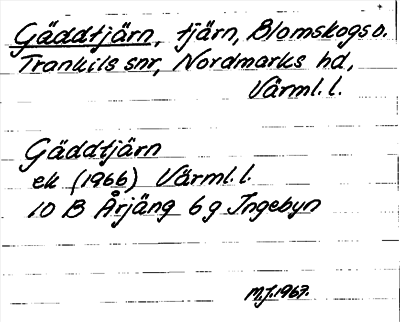 Gäddtjärn, tjärn, Blomskogs o.
Trankils snr, Nordmarks hd,
Värml. l.
Gäddtjärn
ek (1966) Värml. l.
10 B Årjäng 6 g Ingebyn
M.J. 1967.